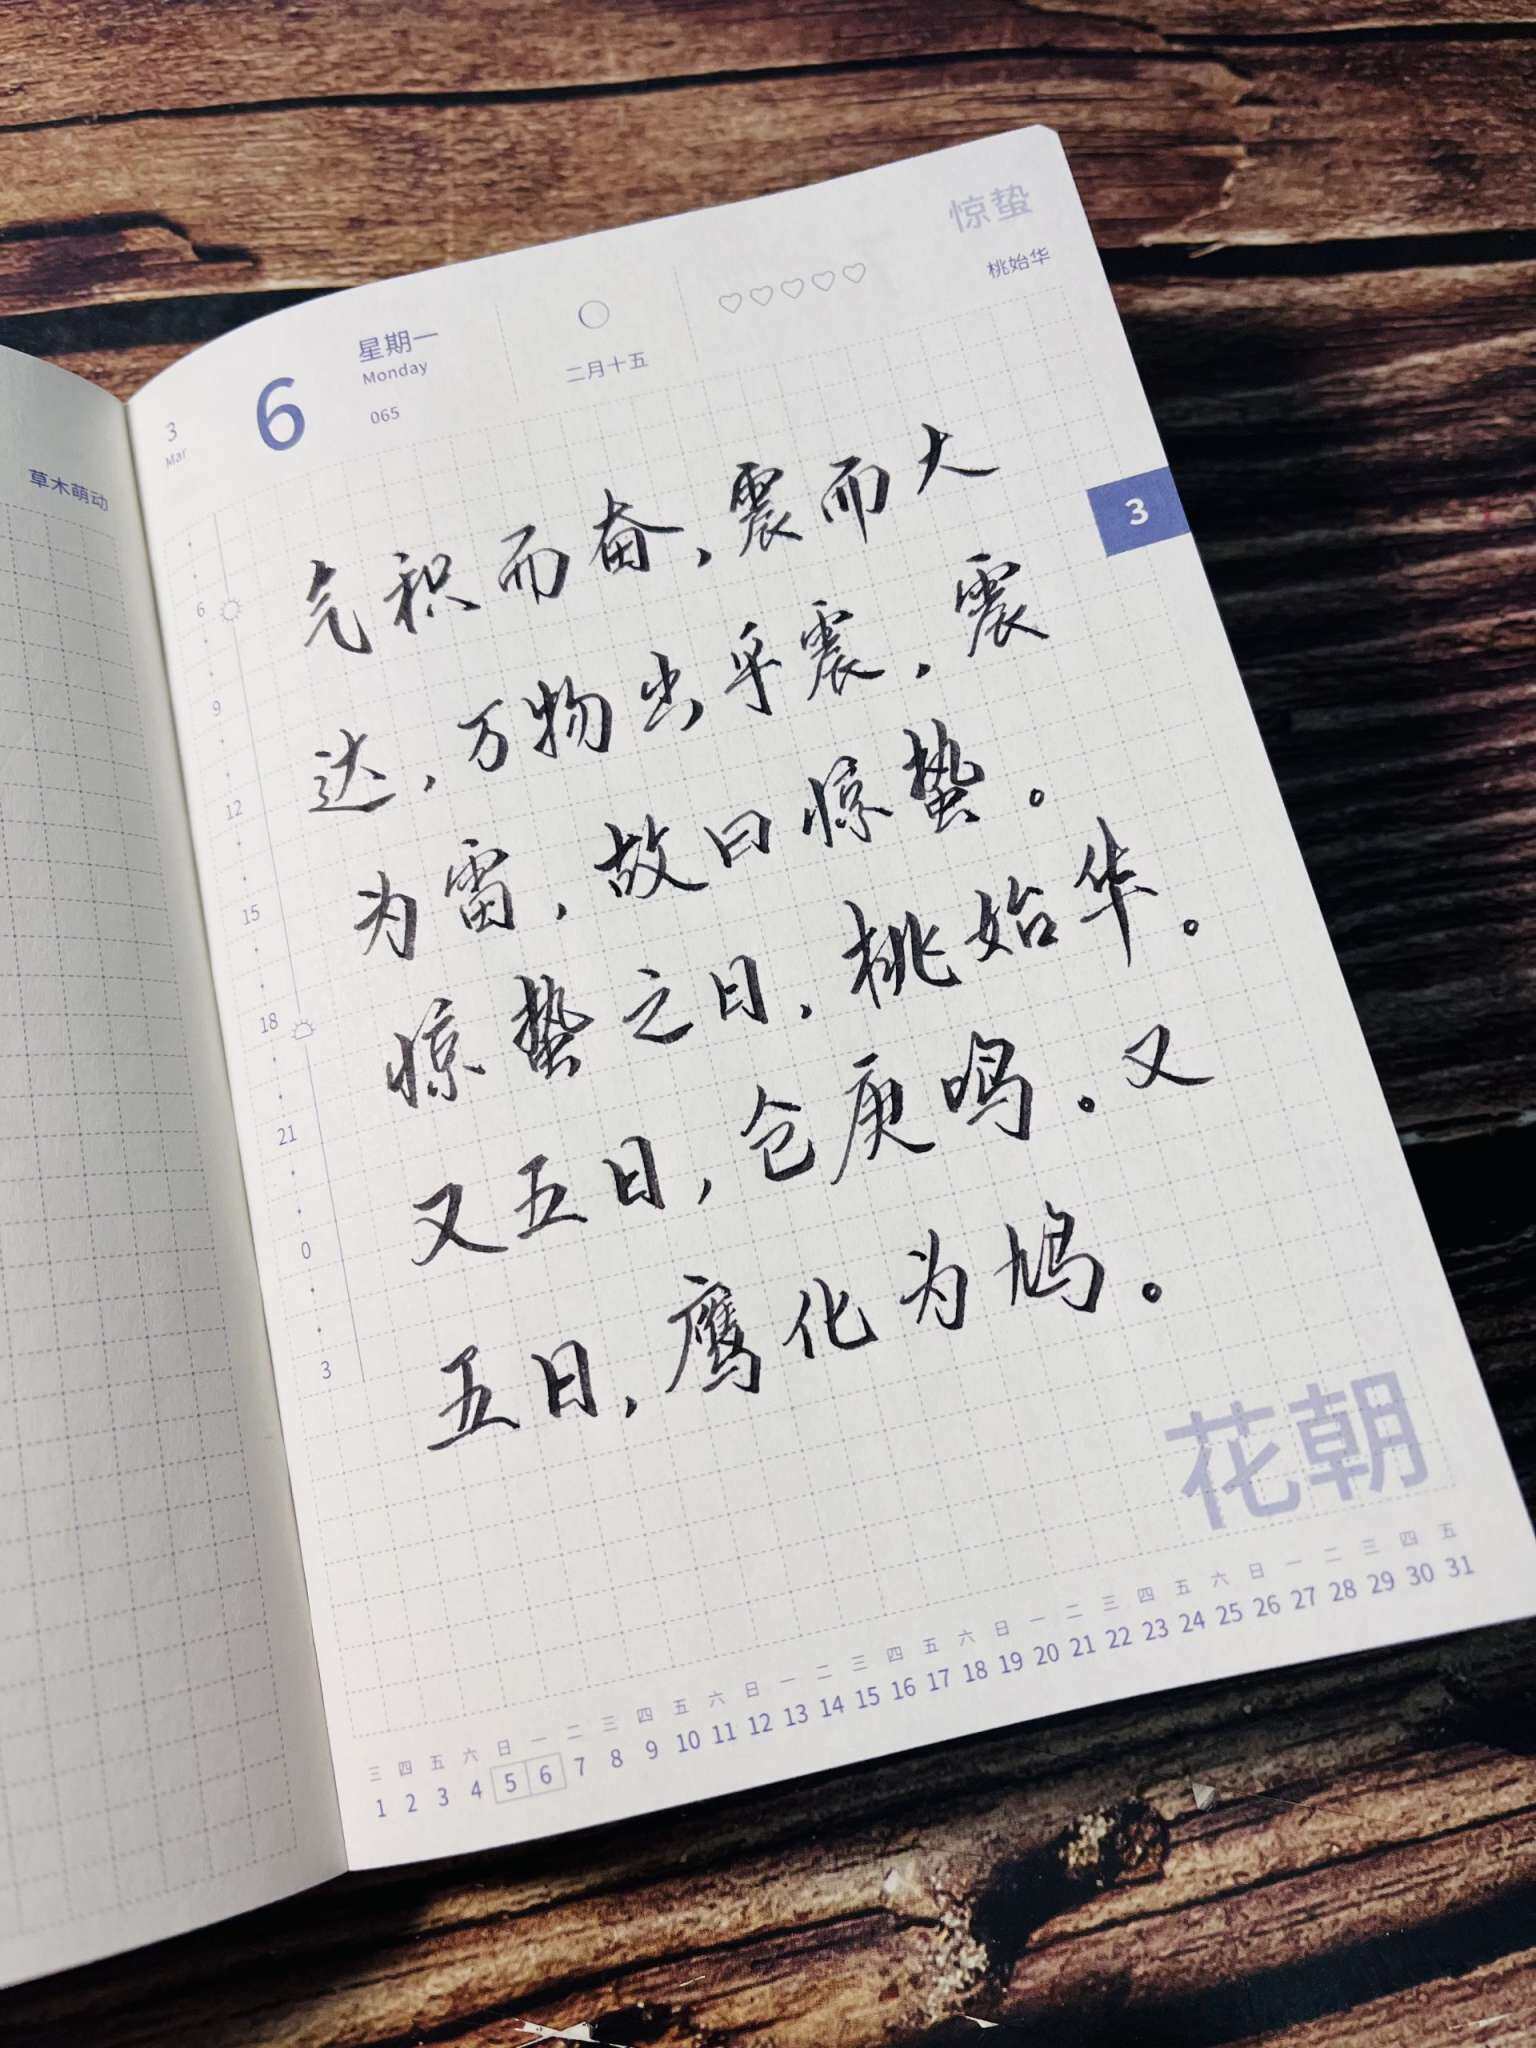 草木萌动
惊蛰
桃始华
3
Mar
6
星期一
Monday
065
二月十五
3
6
9
12
15
18
21
0
3
气积而奋，震而大
达，万物出乎震，震
为雷，故曰惊蛰。
惊蛰之日，桃始华。
又五日，仓庚鸣。又
五日，鹰化为鸠。
花朝
三 四 五 六 日 一 二 三 四 五 六 日 一 二 三 四 五 六 日 一 二 三 四 五 六 日 一 二 三 四 五
1 2 3 4 5 6 7 8 9 10 11 12 13 14 15 16 17 18 19 20 21 22 23 24 25 26 27 28 29 30 31